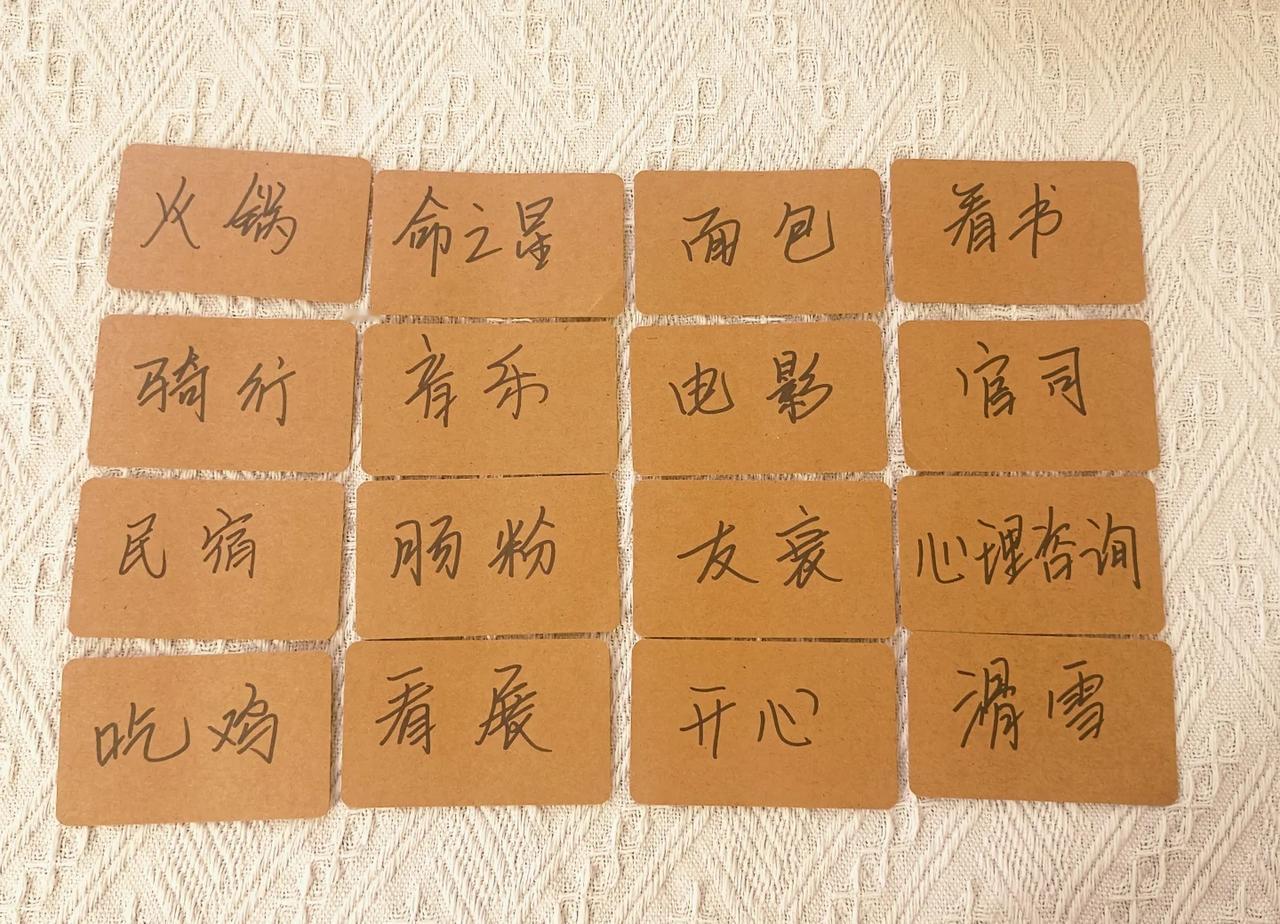 火锅
命之星
面包
看书
骑行
音乐
电影
官司
民宿
肠粉
友衰
心理咨询
吃鸡
看展
开心
滑雪